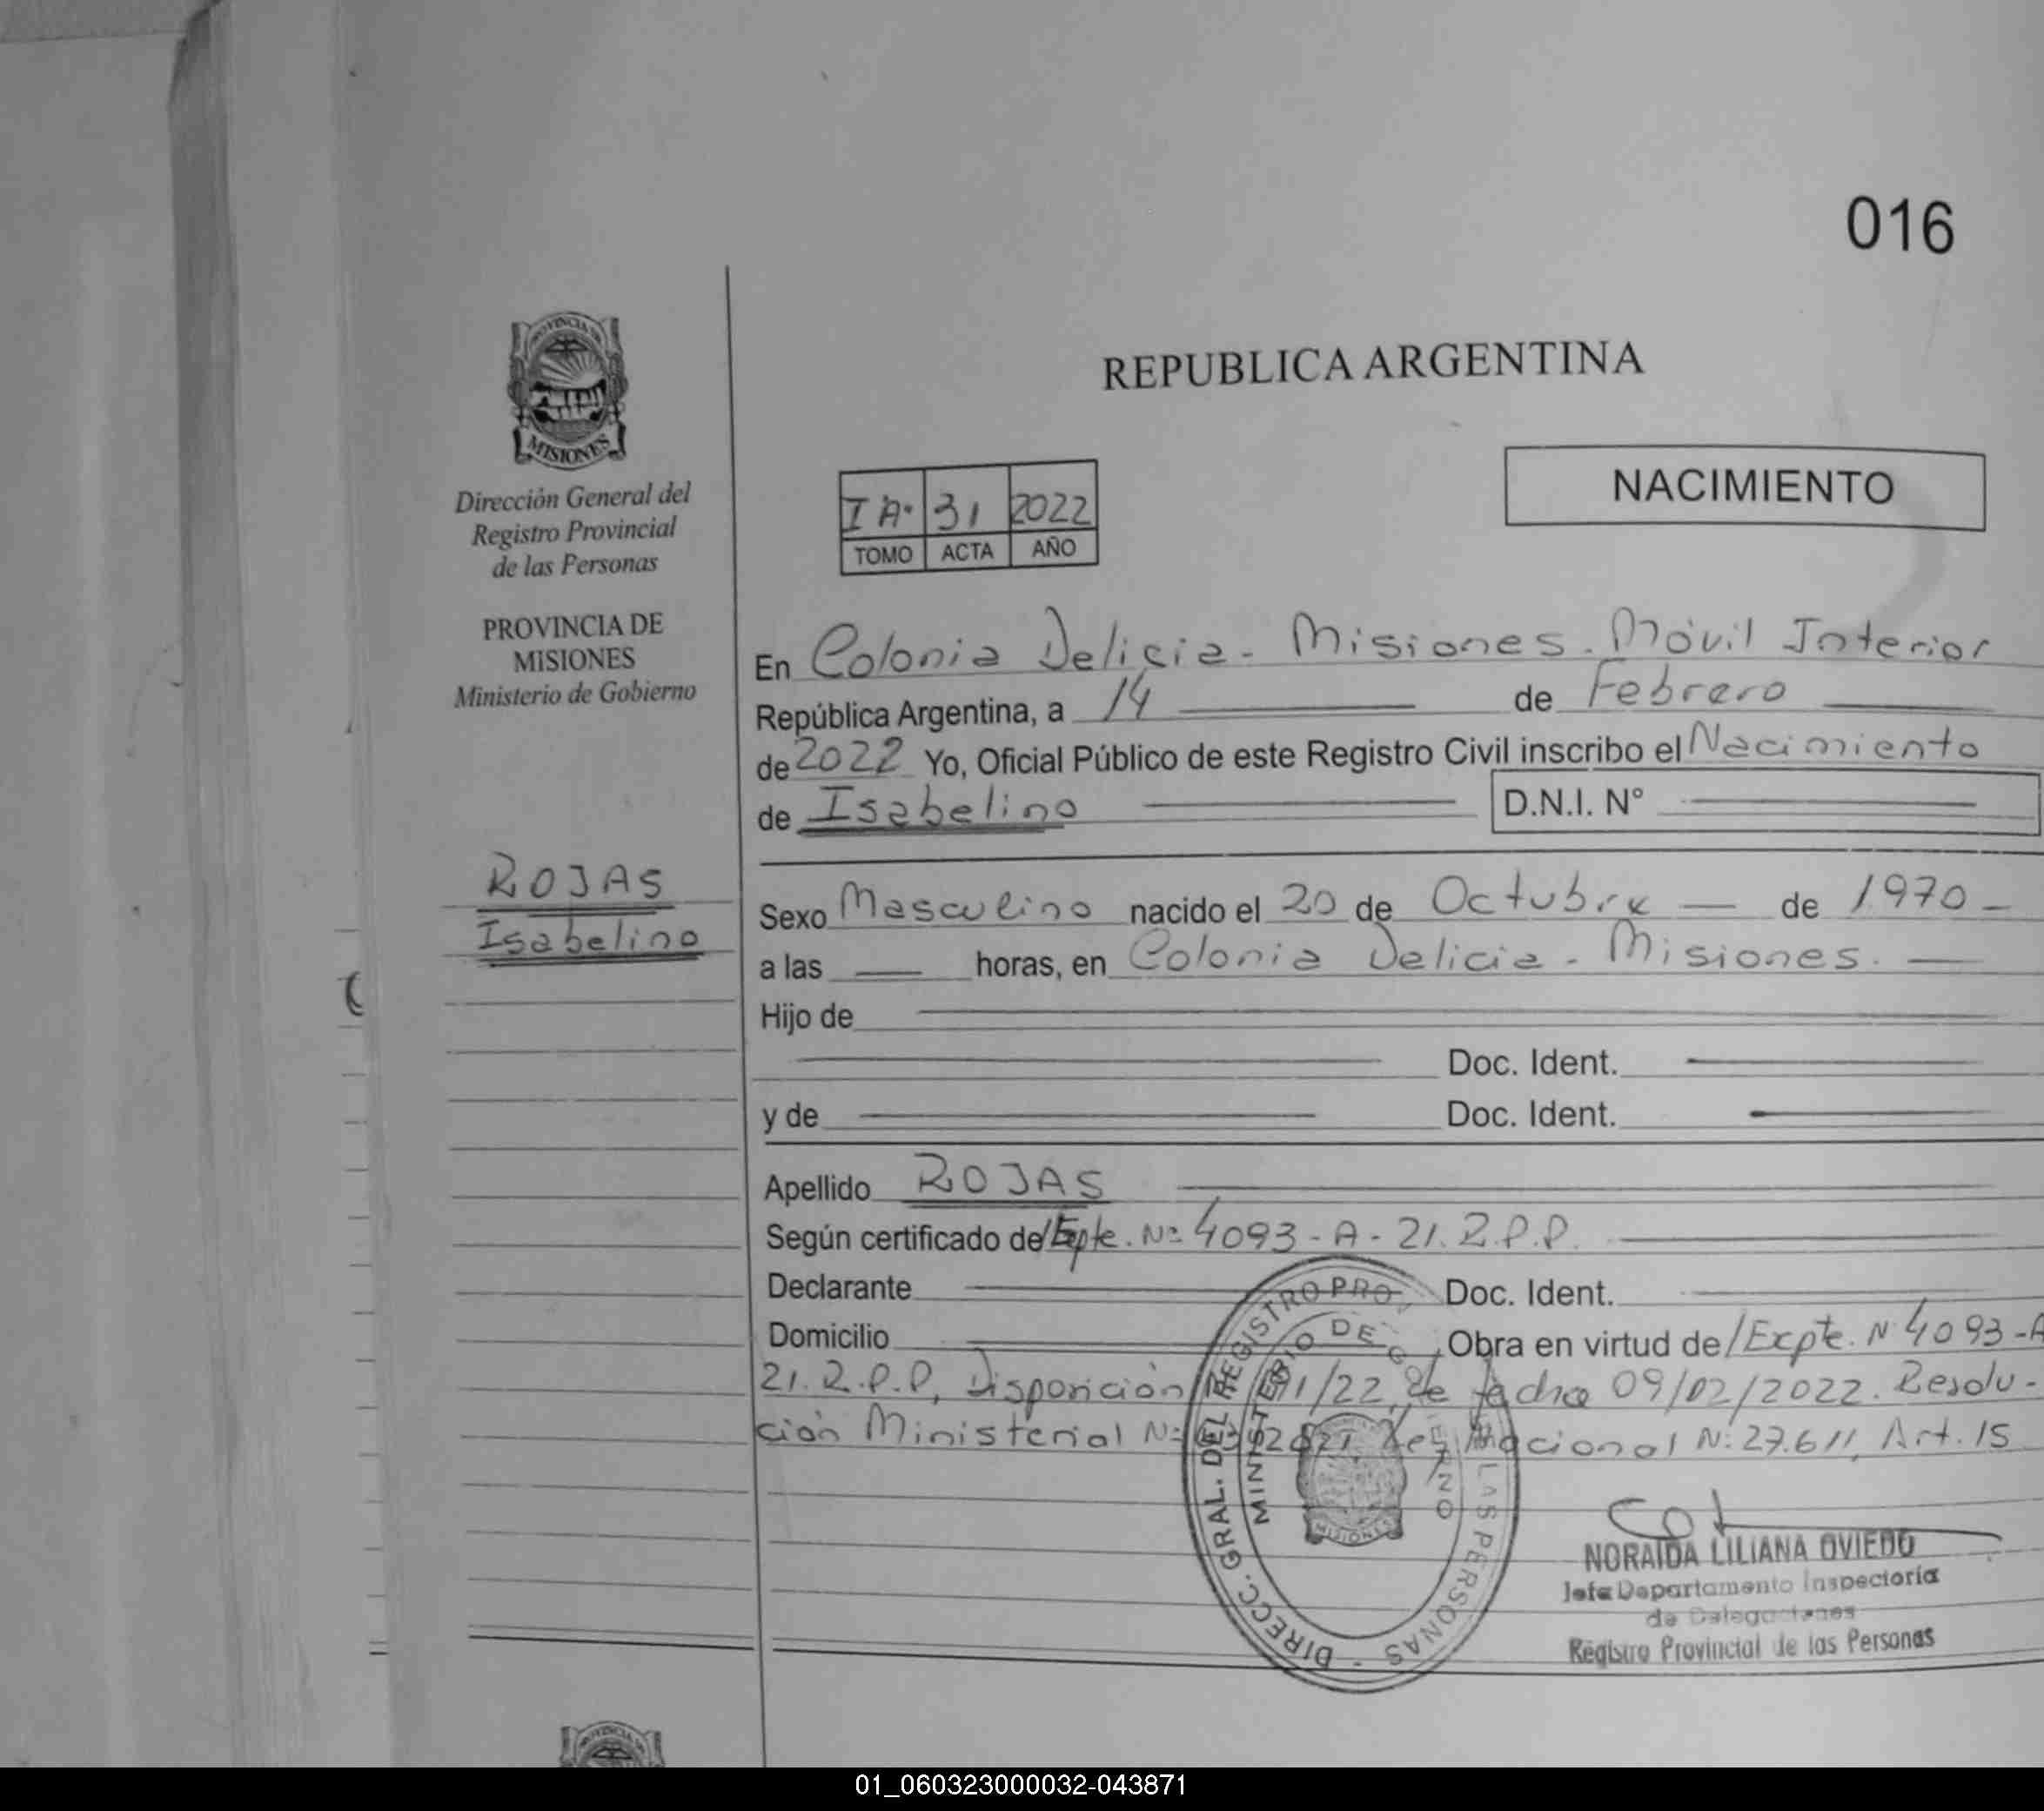 016
PROVINCIA DE
MISIONES
Dirección General del
Registro Provincial
de las Personas
PROVINCIA DE
MISIONES
Ministerio de Gobierno
ROJAS
Isabelino
REPUBLICA ARGENTINA
NACIMIENTO
I A. 31 2022
TOMO ACTA AÑO
En Colonia Delicia - Misiones. Móvil Interior
República Argentina, a 14 de Febrero
de 2022 Yo, Oficial Público de este Registro Civil inscribo el Nacimiento
de Isabelino D.N.I. N°
Sexo Masculino nacido el 20 de Octubre de 1970
a las horas, en Colonia Delicia - Misiones.
Hijo de
Doc. Ident.
y de Doc. Ident.
Apellido ROJAS
Según certificado de/Expte. Nº 4093 - A - 21. R.P.P.
Declarante Doc. Ident.
Domicilio Obra en virtud de/Expte. N 4093-A
21. R.P.P, Disposición /22, de fecha 09/02/2022. Resolu-
ción Ministerial Nº Ley Nacional Nº 27.611, Art. 15
DIRECC. GRAL. DEL REGISTRO PROV. LAS PERSONAS
MINISTERIO DE GOBIERNO
MISIONES
NORAIDA LILIANA OVIEDO
Jefa Departamento Inspectoría
de Delegaciones
Registro Provincial de las Personas
01_060323000032-043871